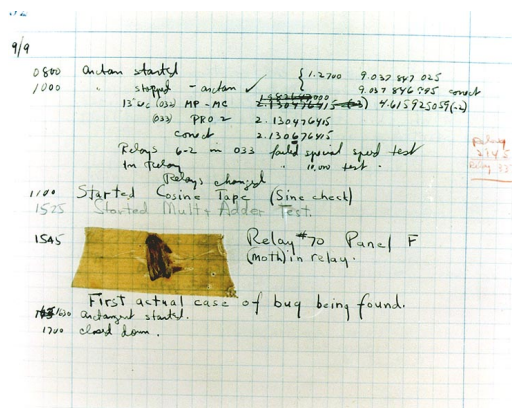 9/9
0800 antan started { 1.2700 9.037 847 025
1000 " stopped - antan ✓ 9.037 846 995 conect
13"uc (032) MP - MC 2.130476415 4.615925059(-2)
(033) PRO 2 2.130476415
conect 2.130676415
Relays 6-2 in 033 failed special speed test
In Relay " 10,000 test.
Relay
Relays changed
1100 Started Cosine Tape (Sine check)
1525 Started Mult + Adder Test.
1545 Relay #70 Panel F
(moth) in relay.
First actual case of bug being found.
1630 antangent started.
1700 closed down.